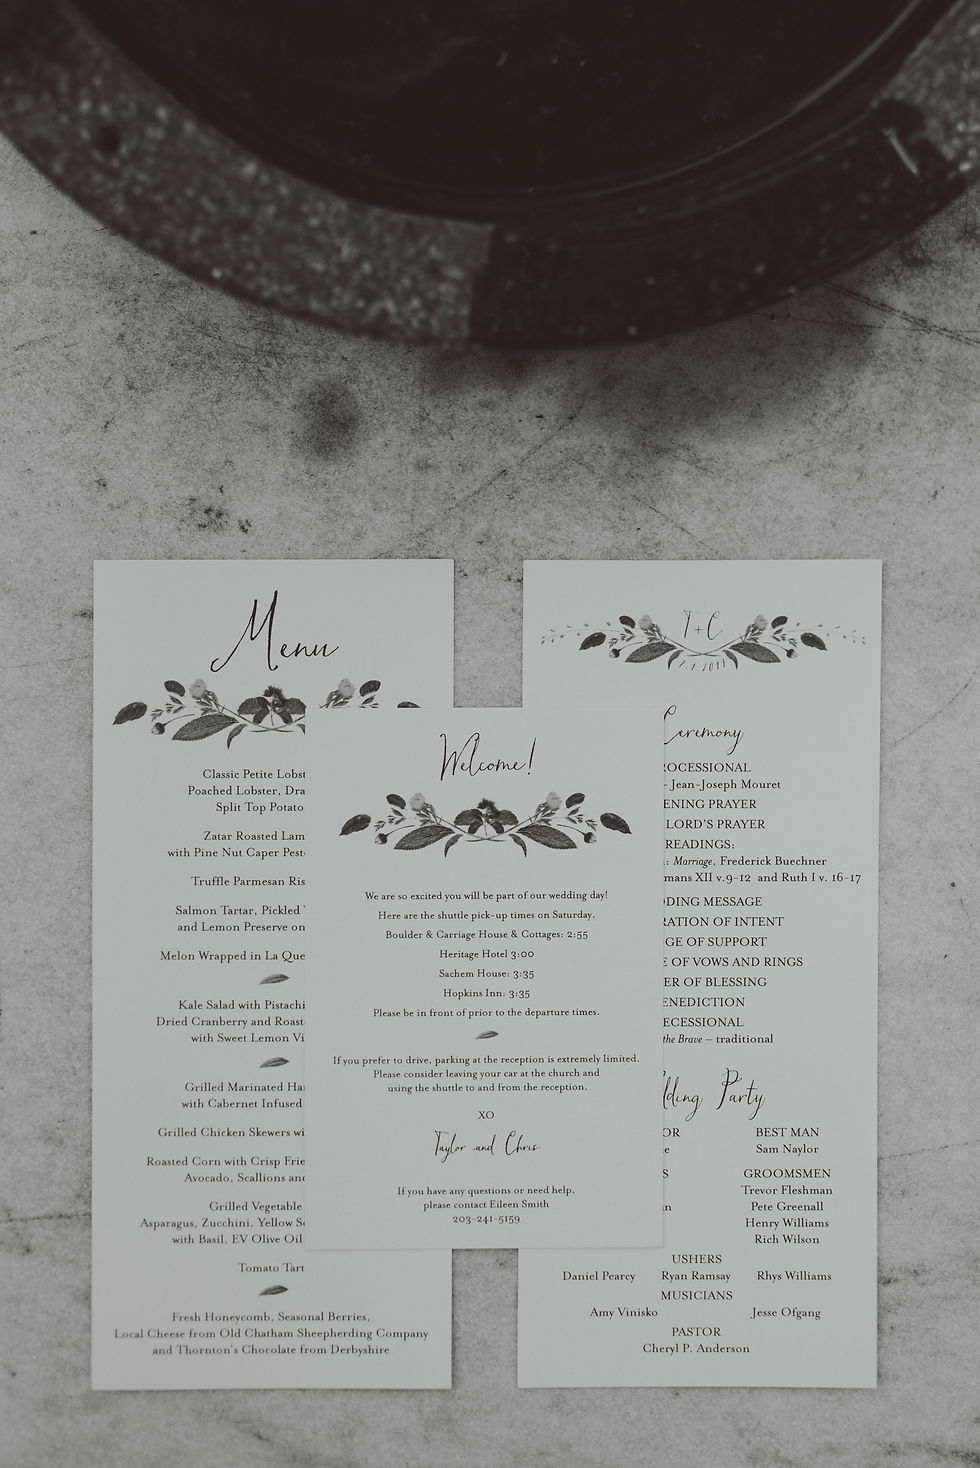 Menu
Classic Petite Lobst
Poached Lobster, Dra
Split Top Potato
Zatar Roasted Lam
with Pine Nut Caper Pest
Truffle Parmesan Ris
Salmon Tartar, Pickled
and Lemon Preserve on
Melon Wrapped in La Que
Kale Salad with Pistachi
Dried Cranberry and Roast
with Sweet Lemon Vi
Grilled Marinated Ha
with Cabernet Infused
Grilled Chicken Skewers wi
Roasted Corn with Crisp Frie
Avocado, Scallions and
Grilled Vegetable
Asparagus, Zucchini, Yellow S
with Basil, EV Olive Oil
Tomato Tart
Fresh Honeycomb, Seasonal Berries,
Local Cheese from Old Chatham Sheepherding Company
and Thornton's Chocolate from Derbyshire
Welcome!
We are so excited you will be part of our wedding day!
Here are the shuttle pick-up times on Saturday.
Boulder & Carriage House & Cottages: 2:55
Heritage Hotel 3:00
Sachem House: 3:35
Hopkins Inn: 3:35
Please be in front of prior to the departure times.
If you prefer to drive, parking at the reception is extremely limited.
Please consider leaving your car at the church and
using the shuttle to and from the reception.
XO
Taylor and Chris
If you have any questions or need help,
please contact Eileen Smith
203-241-5159
T+C
Ceremony
OCESSIONAL
- Jean-Joseph Mouret
ENING PRAYER
LORD'S PRAYER
READINGS:
: Marriage, Frederick Buechner
mans XII v.9-12 and Ruth I v. 16-17
DING MESSAGE
RATION OF INTENT
GE OF SUPPORT
E OF VOWS AND RINGS
ER OF BLESSING
ENEDICTION
ECESSIONAL
the Brave – traditional
lding Party
OR BEST MAN
e Sam Naylor
S GROOMSMEN
Trevor Fleshman
n Pete Greenall
Henry Williams
Rich Wilson
USHERS
Daniel Pearcy Ryan Ramsay Rhys Williams
MUSICIANS
Amy Vinisko Jesse Ofgang
PASTOR
Cheryl P. Anderson